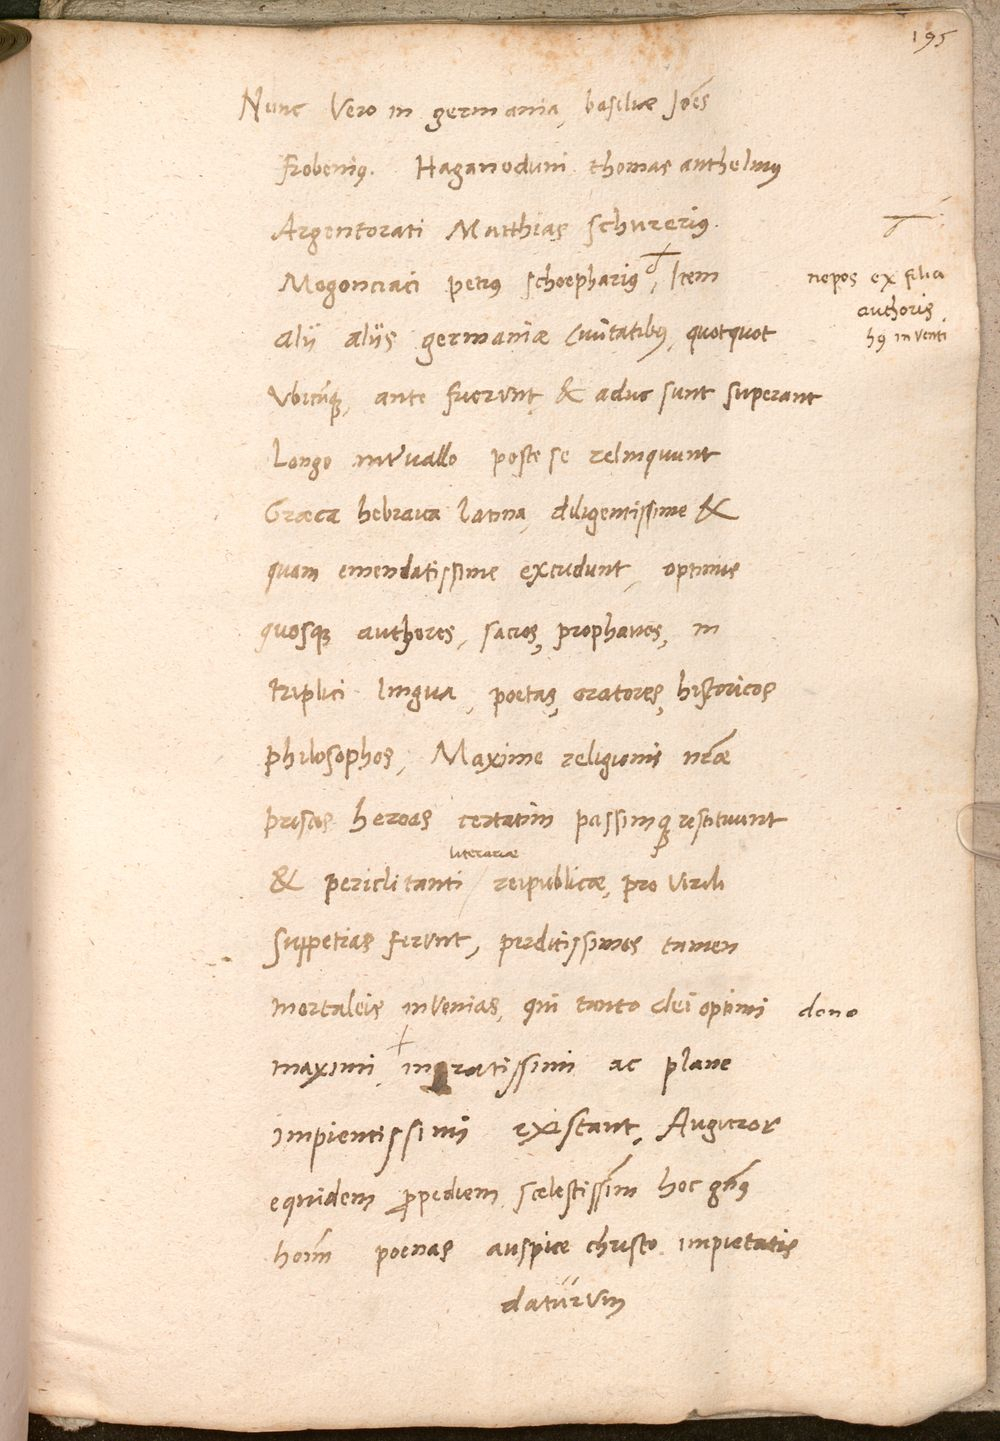 195
Nunc Vero in germania, basileæ Joēs
Frobeniꝰ. Haganoduni thomas anthelmꝰ
Argentorati Matthias schureriꝰ.
Mogonciaci petrꝰ schoephariꝰ, Item
nepos ex filia
authoris
hꝰ inventi
alij alijs germaniæ Ciuitatibꝰ, quotquot
Vbicūqꝫ, ante fuerunt, & aduc sunt superant
Longo intʼuallo post se relinquunt
Græca hebraica latina, diligentissime &
quam emendatissime excudunt, optimos
quosqꝫ authores, sacros, prophanos, in
triplici lingua, poetas, oratores, historicos
philosophos, Maxime religionis nr̄æ
priscos heroas certatim passimqꝫ restituunt
literariæ
& periclitanti / reipublicæ, pro Virili
suppetias ferunt, perditissimos tamen
mortaleis invenias, qui tanto dei optimi dono
maximi ingratissimi ac plane
impientissimi existant, Auguror
equidem ꝓpediem scelestissim̄ hoc gn̄ꝰ
hoīm poenas auspice christo impietatis
daturum